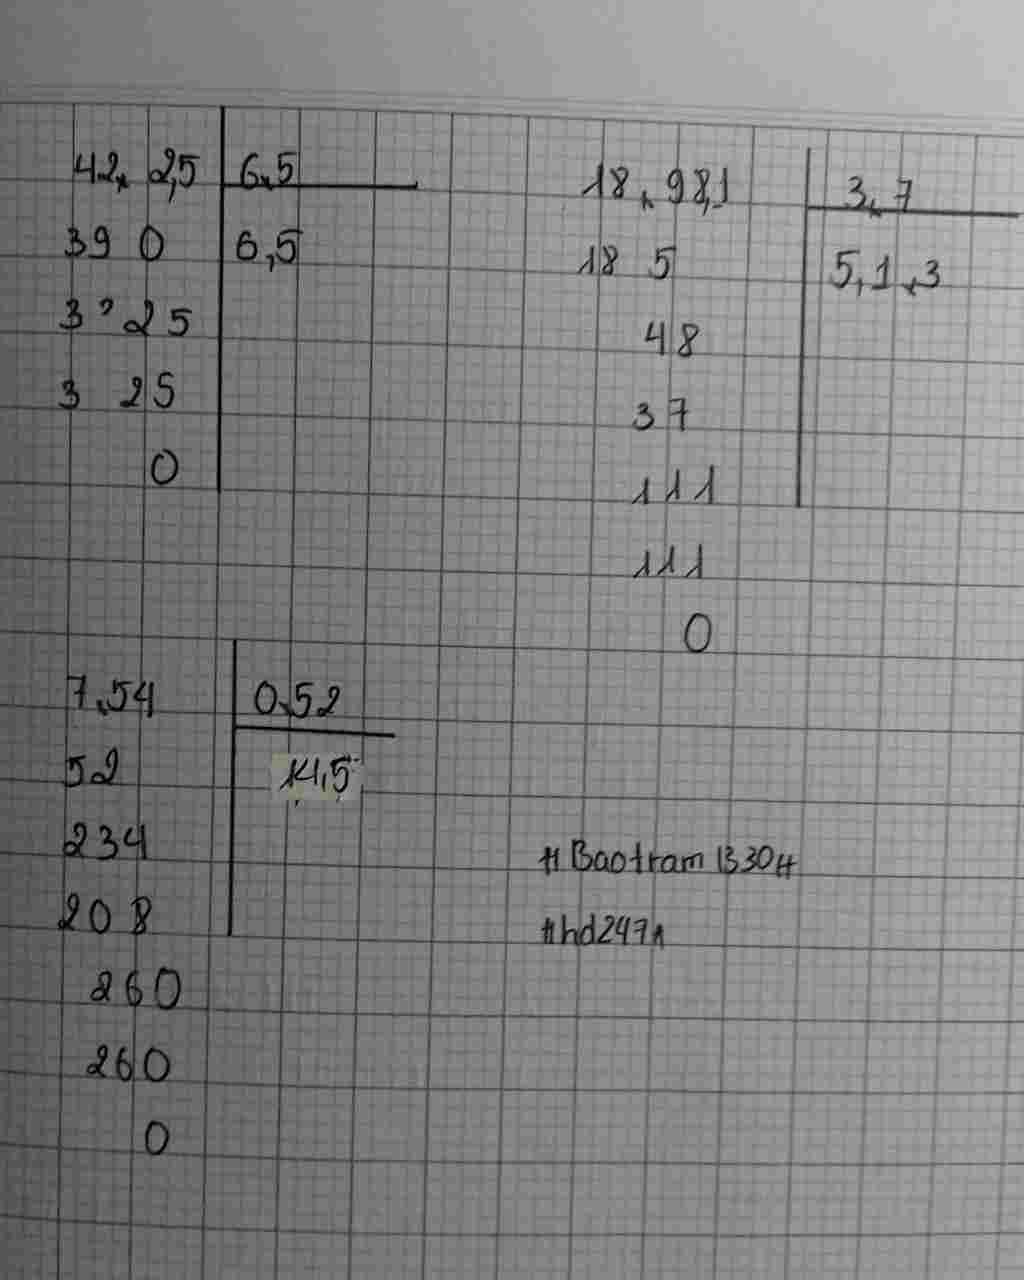 42,2,5 6,5
390 6,5
3 25
3 25
0
18,98,1 3,7
18 5 5,1,3
48
37
111
111
0
7,54 0,52
52 14,5
234
208
260
260
0
#Baotram1330#
#hd247n